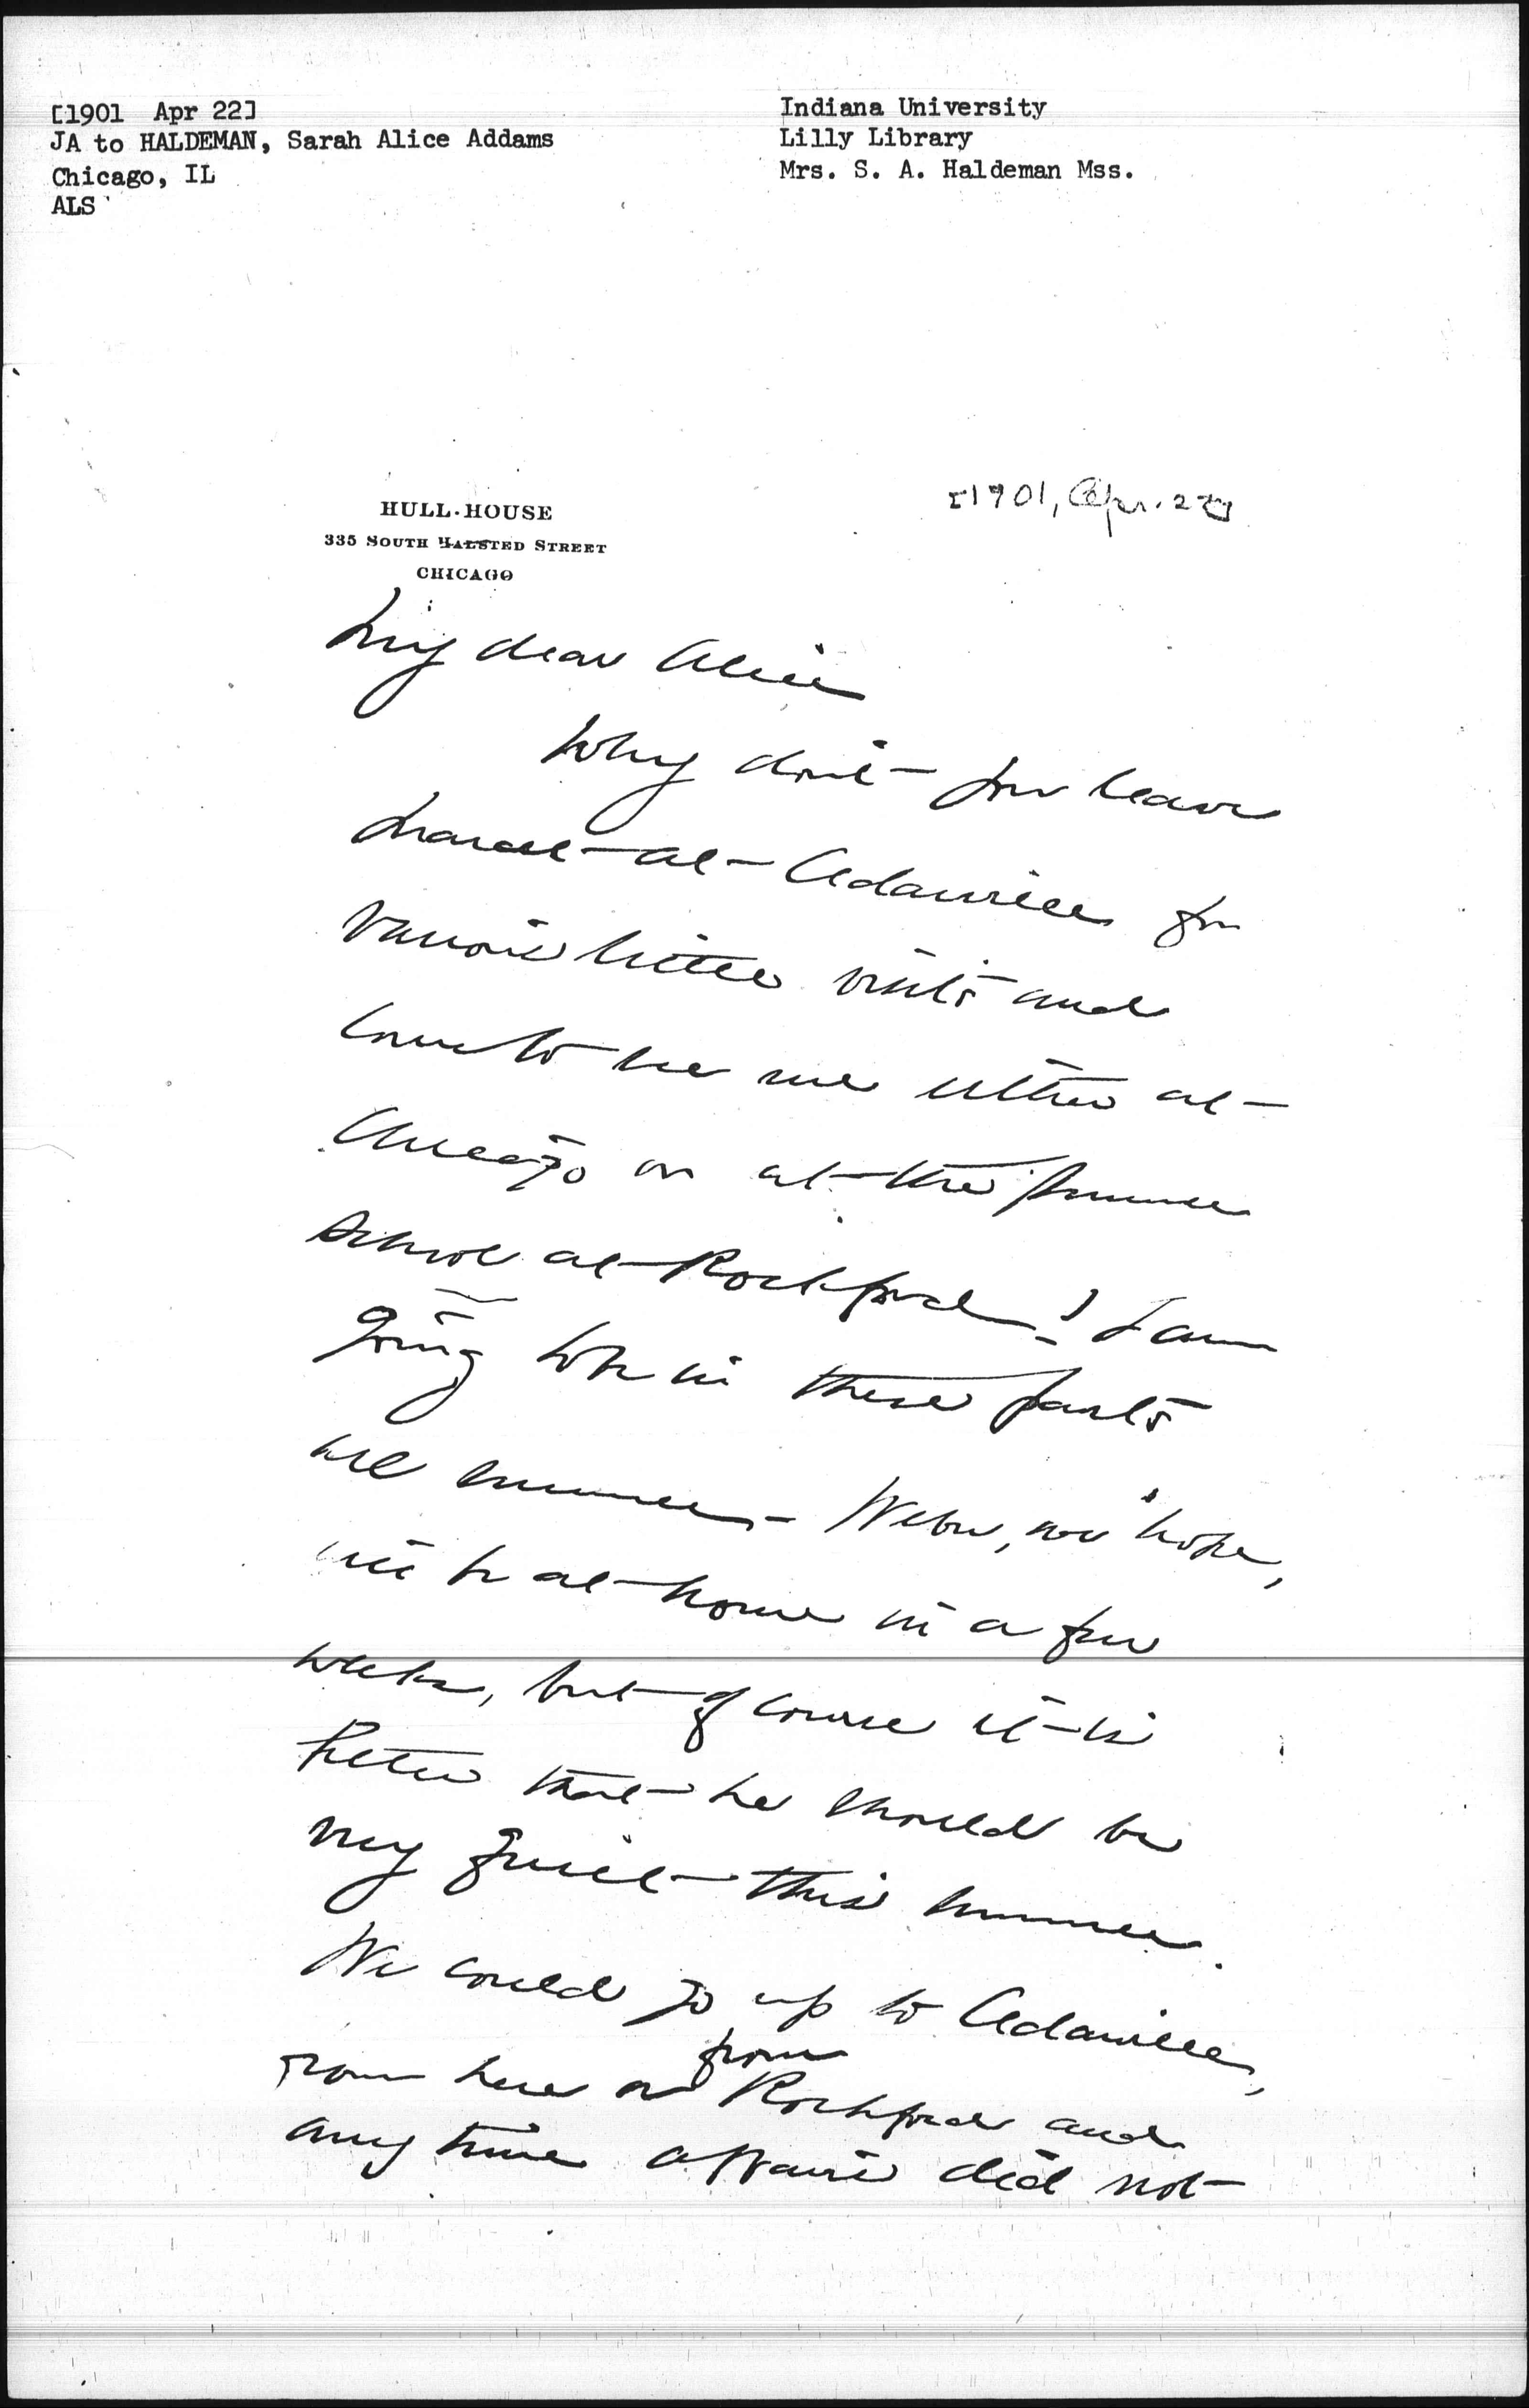 [1901 Apr 22]
JA to HALDEMAN, Sarah Alice Addams
Chicago, IL
ALS
Indiana University
Lilly Library
Mrs. S. A. Haldeman Mss.
HULL-HOUSE
335 SOUTH HALSTED STREET
CHICAGO
[1901, Apr. 22]
My dear Alice
Why don't you leave
Marcet at Cedarville for
various little visits and
come to see me either at
Chicago or at the summer
school at Rockford? I am
going to be in these parts
all summer - Weber, we hope,
will be at home in a few
weeks, but of course it is
better that he should be
very quiet this summer.
We could go up to Cedarville,
from here or from Rockford and
any time affairs did not